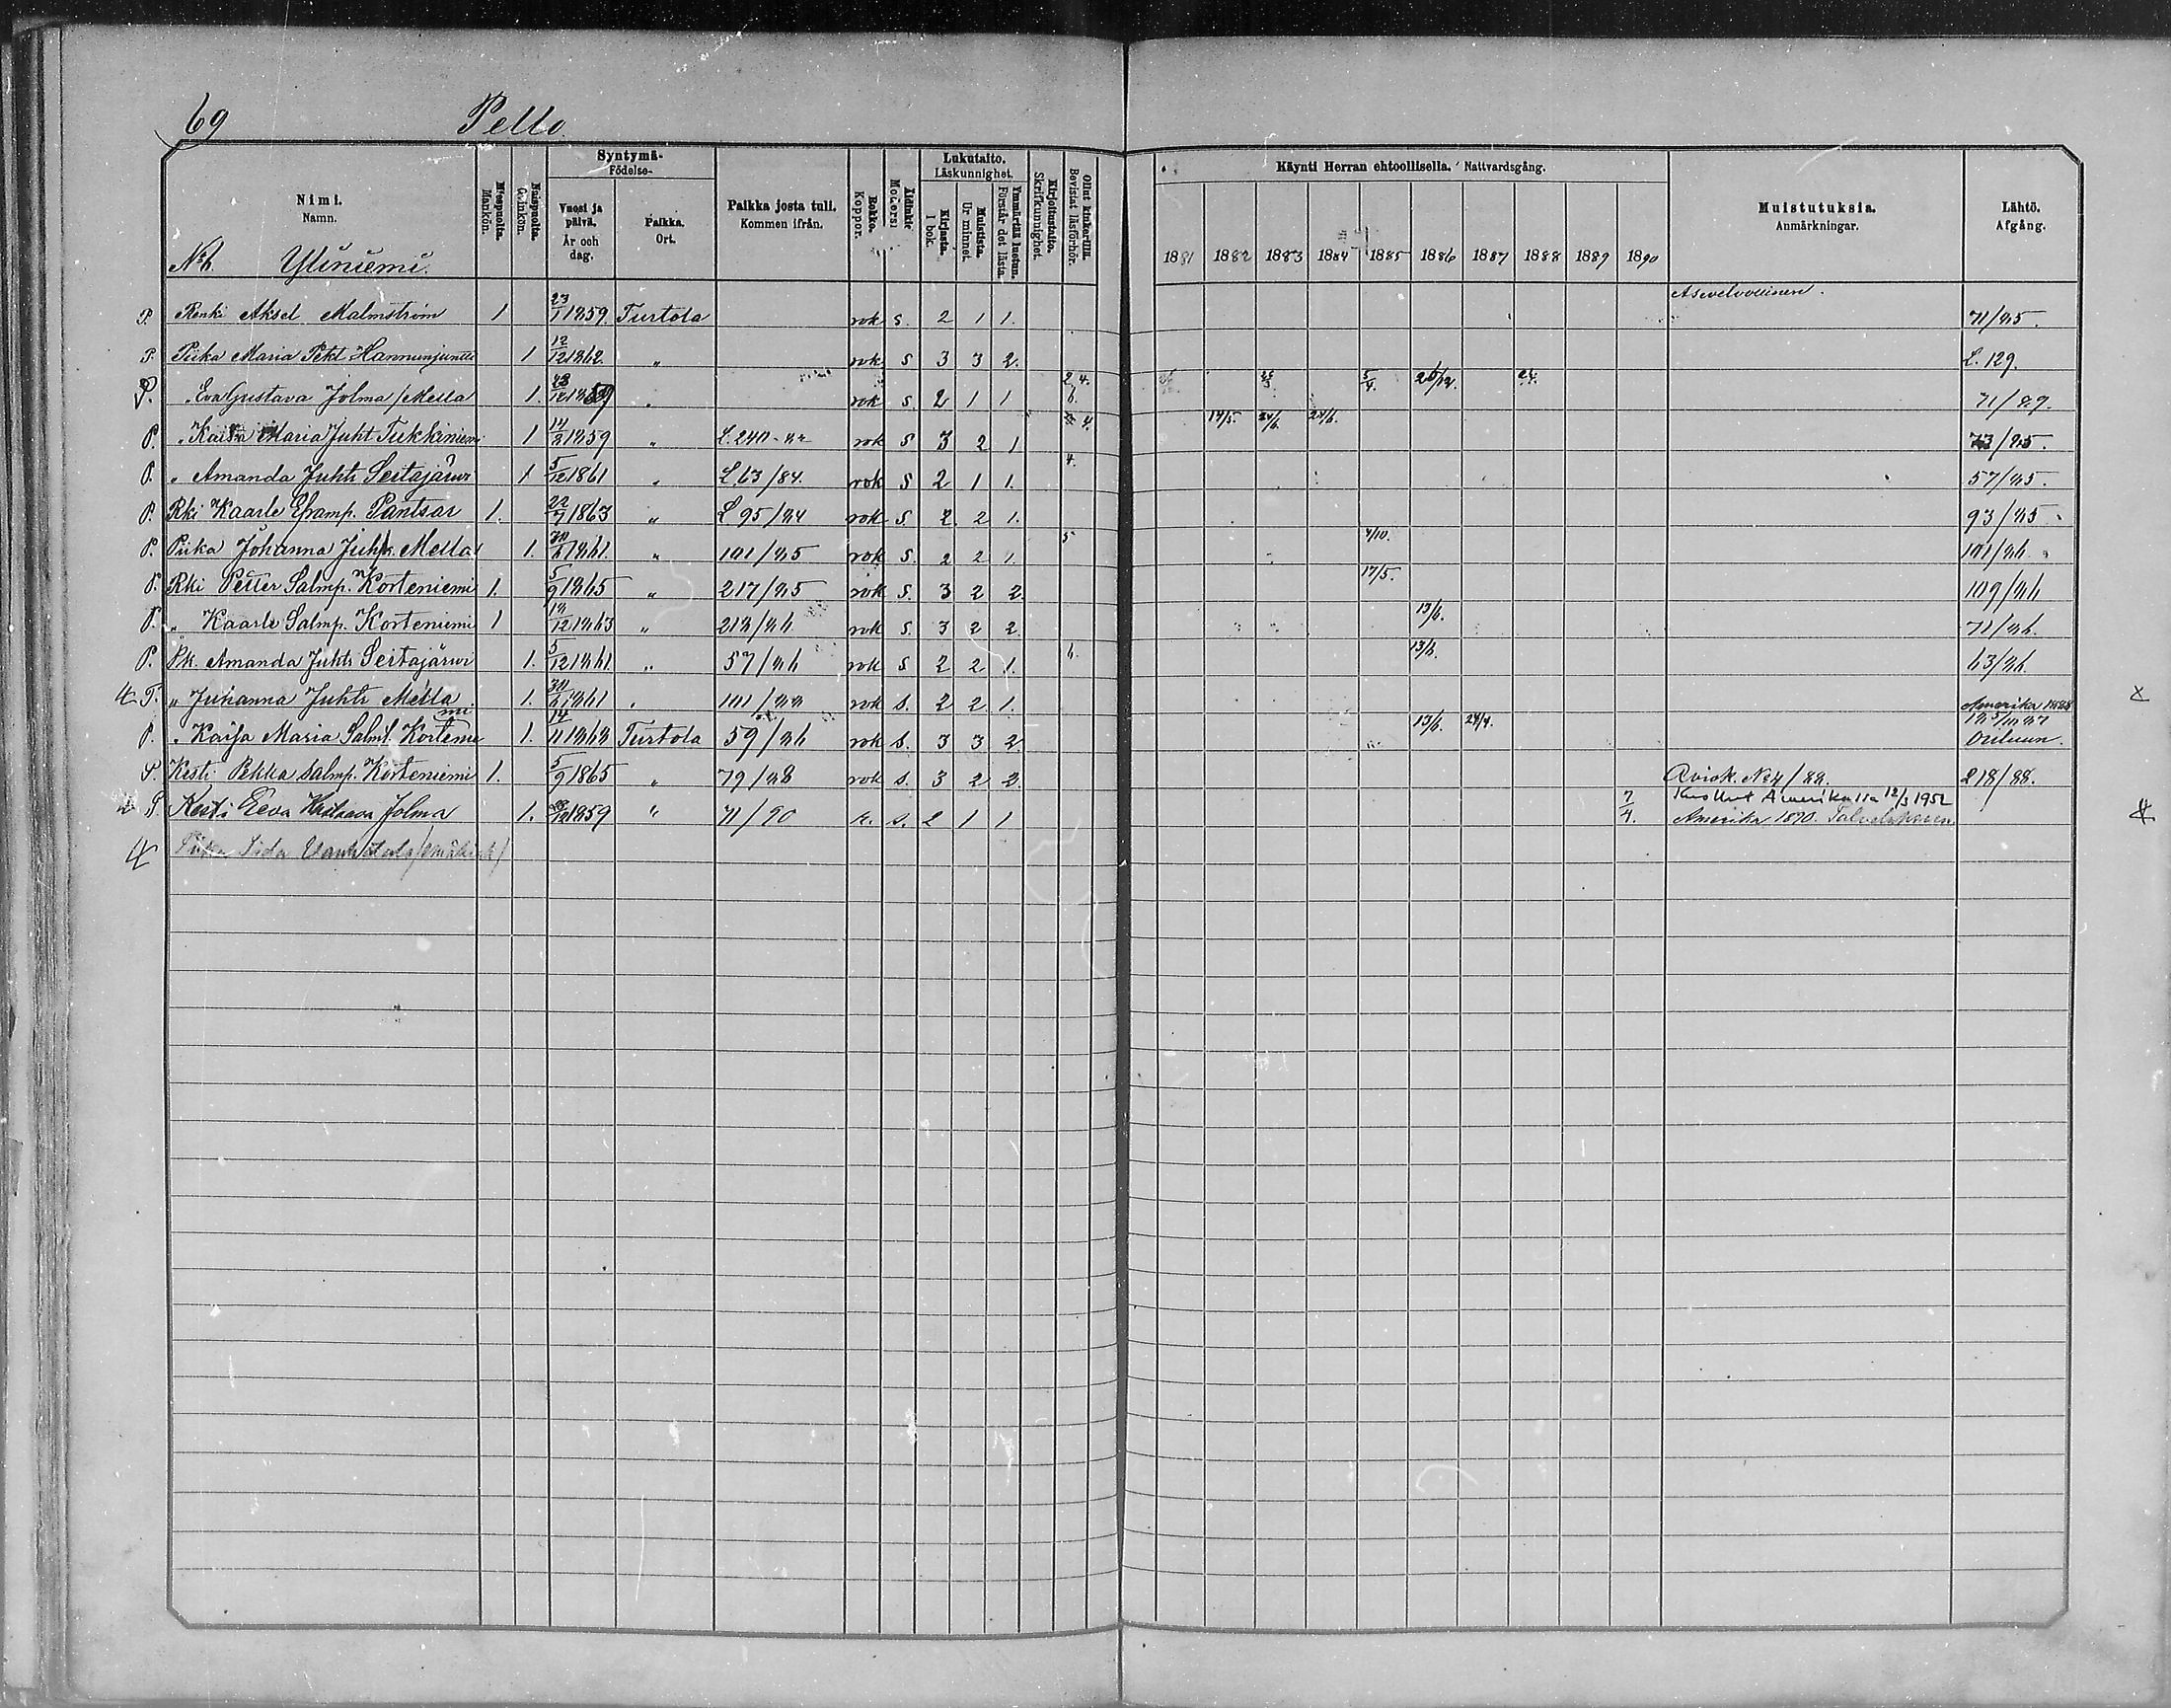 69 Pello.
Nimi. Namn.
Miespuolia. Mankön.
Naispuolia. Qvinkön.
Syntymä- Födelse-
Vuosi ja päivä. År och dag.
Paikka. Ort.
Paikka josta tuli. Kommen ifrån.
Rokko. Koppor.
Lukutaito. Läskunnighet.
Kirjasta. I bok.
Muistista. Ur minnet.
Ymmärtää luetun. Förstår det lästa.
Kirjoitustaito. Skrifkunnighet.
Ollut kinkerillä. Bevistat läsförhör.
Käynti Herran ehtoollisella. Nattvardsgång.
1881 1882 1883 1884 1885 1886 1887 1888 1889 1890
Muistutuksia. Anmärkningar.
Lähtö. Afgång.
Yliniemi.
P. Renki Aksel Malmström 1 23/1 1859. Turtola rok s. 2 1 1. Asevelvollinen. 71/85.
P. Piika Maria Pekt. Hannunjuntti 1 12/12 1862. " rok s 3 3 2. L. 129.
P. " Eva Gustava Jolma /Mella 1. 12 1859 " rok s. 2 1 1 5/4. 71/87.
P. " Kaisa Maria Juht Tukkiniemi 1 1859 " L. 240-82 rok s 3 2 1 17/5. 24/6. 24/6. 73/85.
P. " Amanda Juht. Seitajärwi 1 5/12 1861 " L. 63/84. rok s 2 1 1. 4. 57/85.
P. Rki Kaarle Eframp. Pantsar 1. 22/9 1863 " L 95/84 rok s. 2. 2 1. 93/85.
P. Piika Johanna Juht. Mella 1. 30/6 1861. " 101/85 rok s. 2 2 1. 5 4/10. 101/86.
P. Rki Petter Salmp. Korteniemi 1. 5/9 1865 " 217/85 rok s. 3 2 2. 17/5. 109/86
P. " Kaarle Salmp. Korteniemi 1 12 1863 " 218/86 rok s. 3 2 2. 13/6. 71/86.
P. Pk. Amanda Juht. Seitajärwi 1. 5/12 1861 " 57/86 rok s 2 2 1. 6. 13/6. 63/86.
P. " Juhanna Juht. Mella 1. 30/6 1861 " 101/88 rok s. 2 2 1. Amerika 1888
P. " Kaisa Maria Salmt. Korteniemi 1. 14/11 1868 Turtola 59/86 rok s. 3 3 2. 13/6. 24/4. Ouluun.
P. Kesti Pekka Salmp. Korteniemi 1. 5/9 1865 " 79/88 rok s. 3 2 2. Aviok. No 4/88. 218/88.
P. Kesti Eeva Kustaava Jolma 1. 12 1859 " 71/90 r. s. 2 1 1 7/4. Kuollut Amerikassa 12/3 1952
Amerika 1890.
Piika